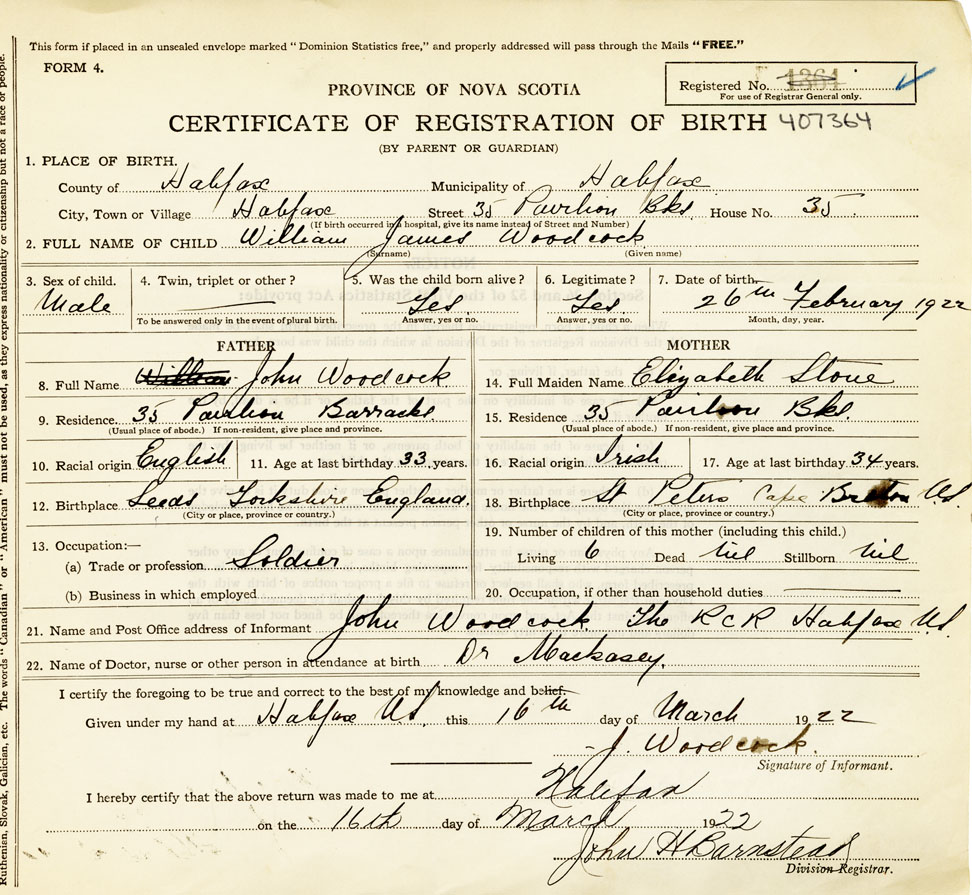 This form if placed in an unsealed envelope marked "Dominion Statistics free," and properly addressed will pass through the Mails "FREE."
FORM 4.
Registered No. 1364
For use of Registrar General only.
PROVINCE OF NOVA SCOTIA
CERTIFICATE OF REGISTRATION OF BIRTH 407364
(BY PARENT OR GUARDIAN)
1. PLACE OF BIRTH.
County of Halifax Municipality of Halifax
City, Town or Village Halifax Street 35 Pavilion Bks House No. 35
(If birth occurred in a hospital, give its name instead of Street and Number)
2. FULL NAME OF CHILD William James Woodcock
(Surname) (Given name)
3. Sex of child. 4. Twin, triplet or other? 5. Was the child born alive? 6. Legitimate? 7. Date of birth.
Male Yes Yes 26th February 1922
To be answered only in the event of plural birth. Answer, yes or no. Answer, yes or no. Month, day, year.
FATHER
8. Full Name William John Woodcock
9. Residence 35 Pavilion Barracks
(Usual place of abode.) If non-resident, give place and province.
10. Racial origin English 11. Age at last birthday 33 years.
12. Birthplace Leeds Yorkshire England.
(City or place, province or country.)
13. Occupation:—
(a) Trade or profession Soldier
(b) Business in which employed
MOTHER
14. Full Maiden Name Elizabeth Stone
15. Residence 35 Pavilion Bks.
(Usual place of abode.) If non-resident, give place and province.
16. Racial origin Irish 17. Age at last birthday 34 years.
18. Birthplace St Peters Cape Breton NS
(City or place, province or country.)
19. Number of children of this mother (including this child.)
Living 6 Dead Nil Stillborn Nil
20. Occupation, if other than household duties
21. Name and Post Office address of Informant John Woodcock. The R C R Halifax NS.
22. Name of Doctor, nurse or other person in attendance at birth Dr Mackasey.
I certify the foregoing to be true and correct to the best of my knowledge and belief.
Given under my hand at Halifax NS, this 16th day of March 1922
J. Woodcock.
Signature of Informant.
I hereby certify that the above return was made to me at Halifax
on the 16th day of March 1922
John H Barnstead
Division Registrar.
Ruthenian, Slovak, Galician, etc. The words "Canadian" or "American" must not be used, as they express nationality or citizenship but not a race or people.